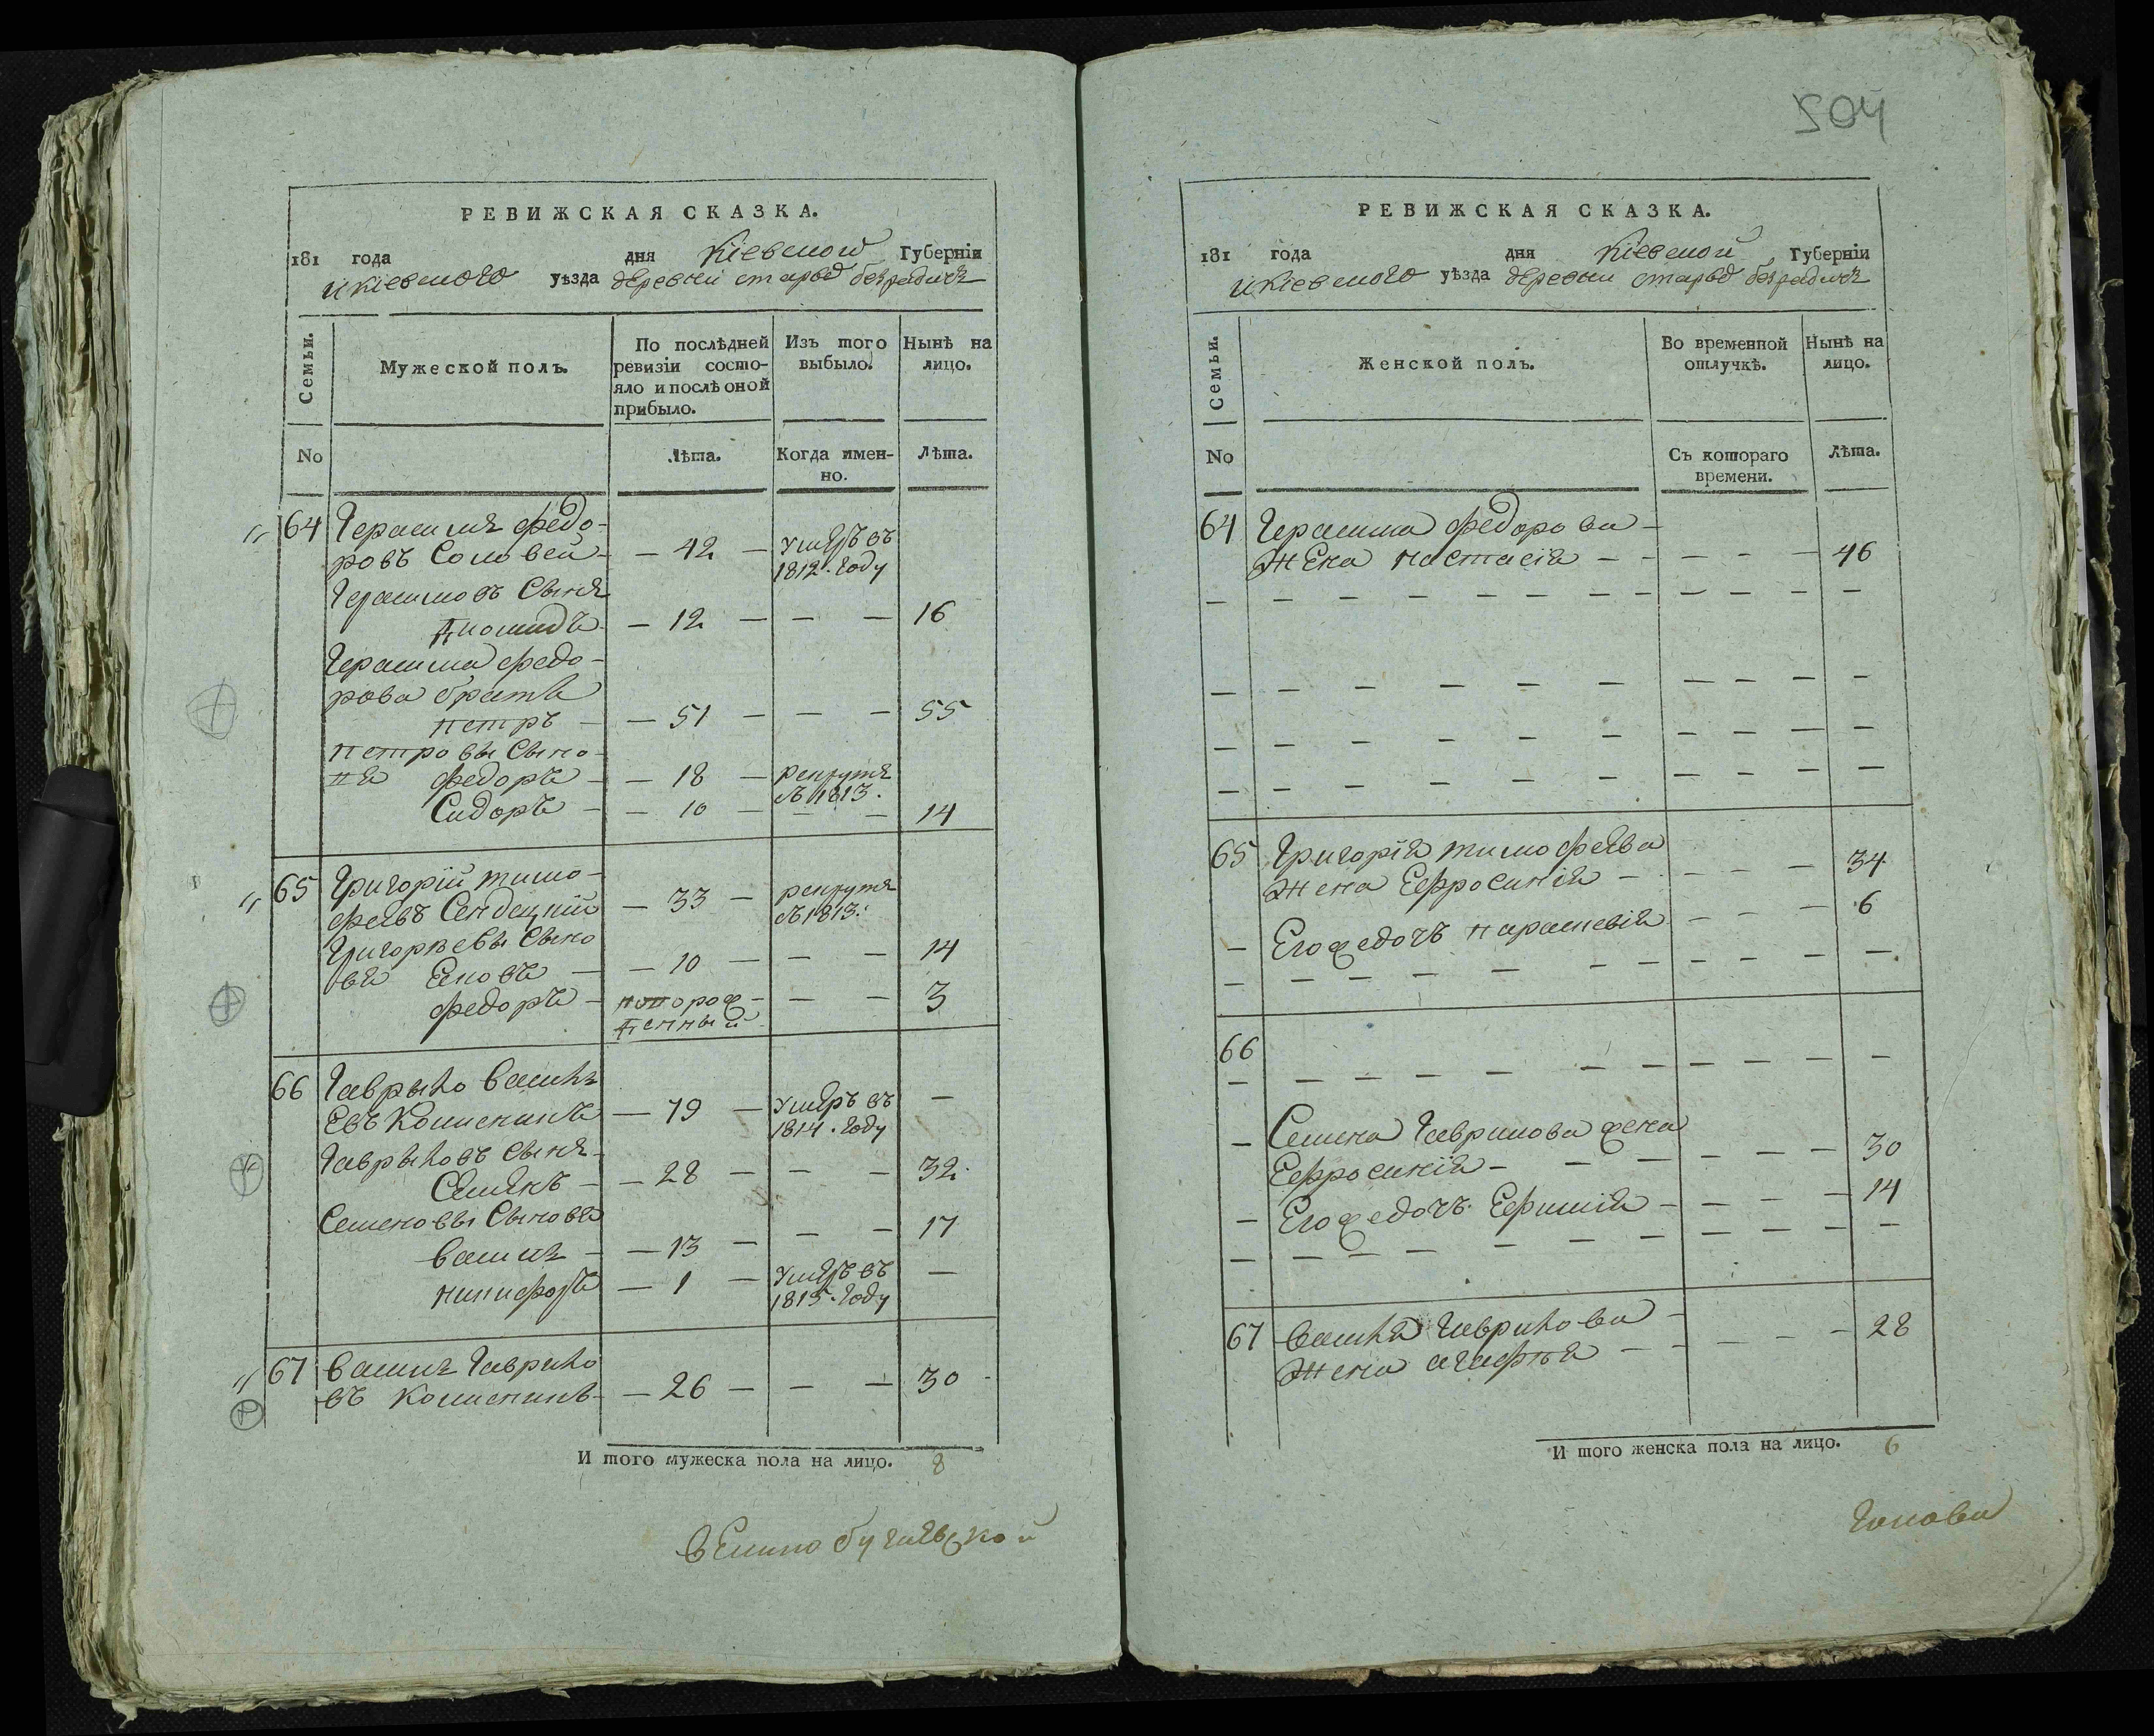 504
РЕВИЖСКАЯ СКАЗКА.
181 года дня Кіевской Губерніи
и Кіевского уѣзда деревни старыхъ безрадичъ
Семьи.
Мужеской полъ.
По послѣдней ревизіи состо-
яло и послѣ оной
прибыло.
Изъ того
выбыло.
Нынѣ на
лицо.
No
Лѣта.
Когда имен-
но.
Лѣта.
64 Герасимъ федо-
ровъ Соловей — 42 — умеръ въ
1812. году
Герасимовъ Сынъ
— 12 — — — 16
Герасима федо-
рова братъ
петръ — — 51 — — — 55
петровы Сыно-
вя федоръ — — 18 — рекрутъ
въ 1813.
Сидоръ — — 10 — — — 14
65 Григорій тимо-
феевъ Сендецкій — 33 — рекрутъ
въ 1813.
Григорьевы Сыно
вя Яковъ — — 10 — — — 14
федоръ — новорож- — — 3
денный
66 Гаврыло Васильъ
евъ — 79 — умеръ въ —
1814. году
Гаврыловъ Сынъ —
Семенъ — — 28 — — — 32.
Семеновы Сыновя
Василь — — 13 — — — 17
никифоръ — 1 — умеръ въ —
1815. году
67 Василь Гаврило
въ — 26 — — — 30
И того мужеска пола на лицо. 8
РЕВИЖСКАЯ СКАЗКА.
181 года дня Кіевской Губерніи
и Кіевского уѣзда деревни старыхъ безрадичъ
Семьи.
Женской полъ.
Во временной
отлучкѣ.
Нынѣ на
лицо.
No
Съ котораго
времени.
Лѣта.
64 Герасима федорова —
жена настасія — — — — — 46
65 Григорія тимофеева
жена Ефросинія — — — — 34
— Его дочъ параскевія — — — 6
66
— Семена Гаврилова жена
Ефросинія — — — — — — 30
— Его дочъ Ефимія — — — — 14
67 Василя Гаврилова —
жена агафія — — — — — 28
И того женска пола на лицо. 6